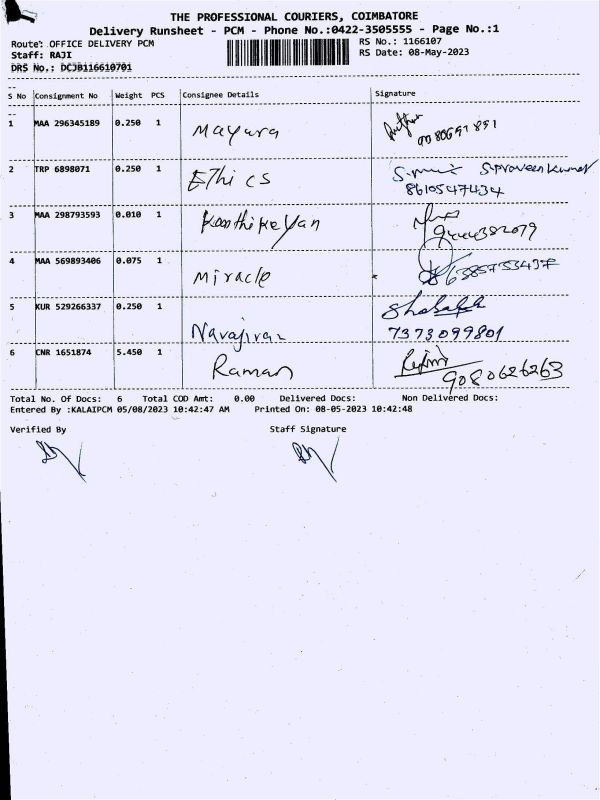 THE PROFESSIONAL COURIERS, COIMBATORE
Delivery Runsheet - PCM - Phone No.:0422-3505555 - Page No.:1
Route: OFFICE DELIVERY PCM RS No.: 1166107
Staff: RAJI RS Date: 08-May-2023
DRS No.: DCJB116610701
S No Consignment No Weight PCS Consignee Details Signature
1 MAA 296345189 0.250 1 Mayura
2 TRP 6898071 0.250 1 EThics S.praveenkumar
8610547434
3 MAA 298793593 0.010 1 Karthikeyan
4 MAA 569893406 0.075 1 Miracle
5 KUR 529266337 0.250 1 Navajivan
7373099801
6 CNR 1651874 5.450 1 Raman 9080626263
Total No. Of Docs: 6 Total COD Amt: 0.00 Delivered Docs: Non Delivered Docs:
Entered By :KALAIPCM 05/08/2023 10:42:47 AM Printed On: 08-05-2023 10:42:48
Verified By Staff Signature